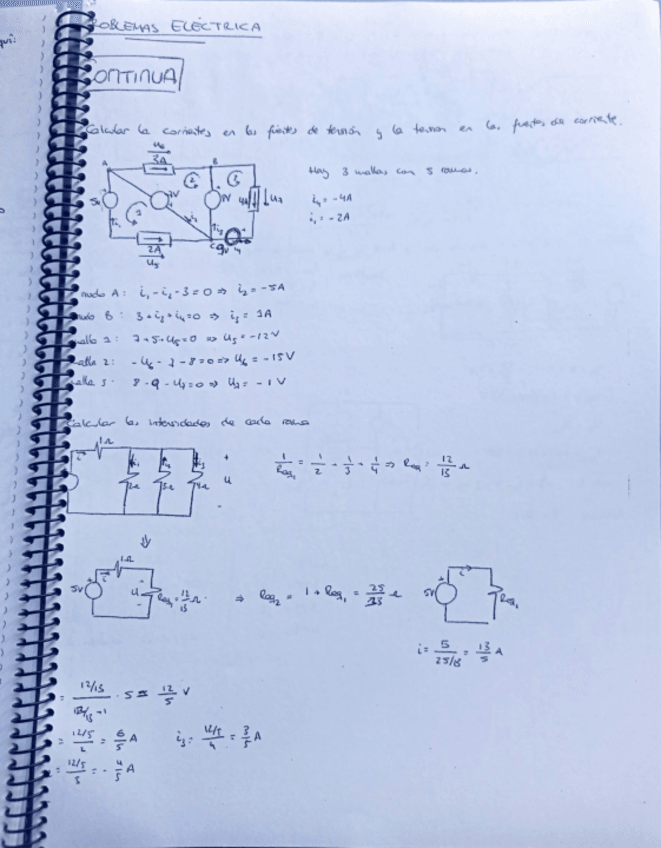 qui:
ROBLEMAS ELÉCTRICA
CONTINUA
Calcular la corrientes en las fuentes de tensión y la tension en las fuentes de corriente.
U6
3A
A
B
2
3
Hay 3 mallas con 5 ramas.
5v
7V
8V
4A
U7
i4 = -4A
i1 = -2A
i1
i2
i3
C
9v
2A
U5
nudo A: i1 - i2 - 3 = 0 ⇒ i2 = -5A
nudo B: 3 + i3 + i4 = 0 ⇒ i3 = 1A
alla 1: 7 + 5 + U5 = 0 ⇒ U5 = -12V
alla 2: - U6 - 7 - 8 = 0 ⇒ U6 = -15V
alla 3: 8 - 9 - U7 = 0 ⇒ U7 = -1V
Calcular las intensidades de cada rama
1Ω
i
i1
i2
i3
+
2Ω
3Ω
4Ω
u
-
1/Req1 = 1/2 + 1/3 + 1/4 ⇒ Req1 = 12/13 Ω
⇓
1Ω
5V
+
i
u
Req1 = 12/13 Ω
⇒ Req2 = 1 + Req1 = 25/13 Ω
5V
+
i
Req2
i = 5/(25/13) = 13/5 A
= (12/13)/(12/13 + 1) · 5 = 12/5 V
= (12/5)/2 = 6/5 A
i3 = (12/5)/4 = 3/5 A
= (12/5)/3 = 4/5 A